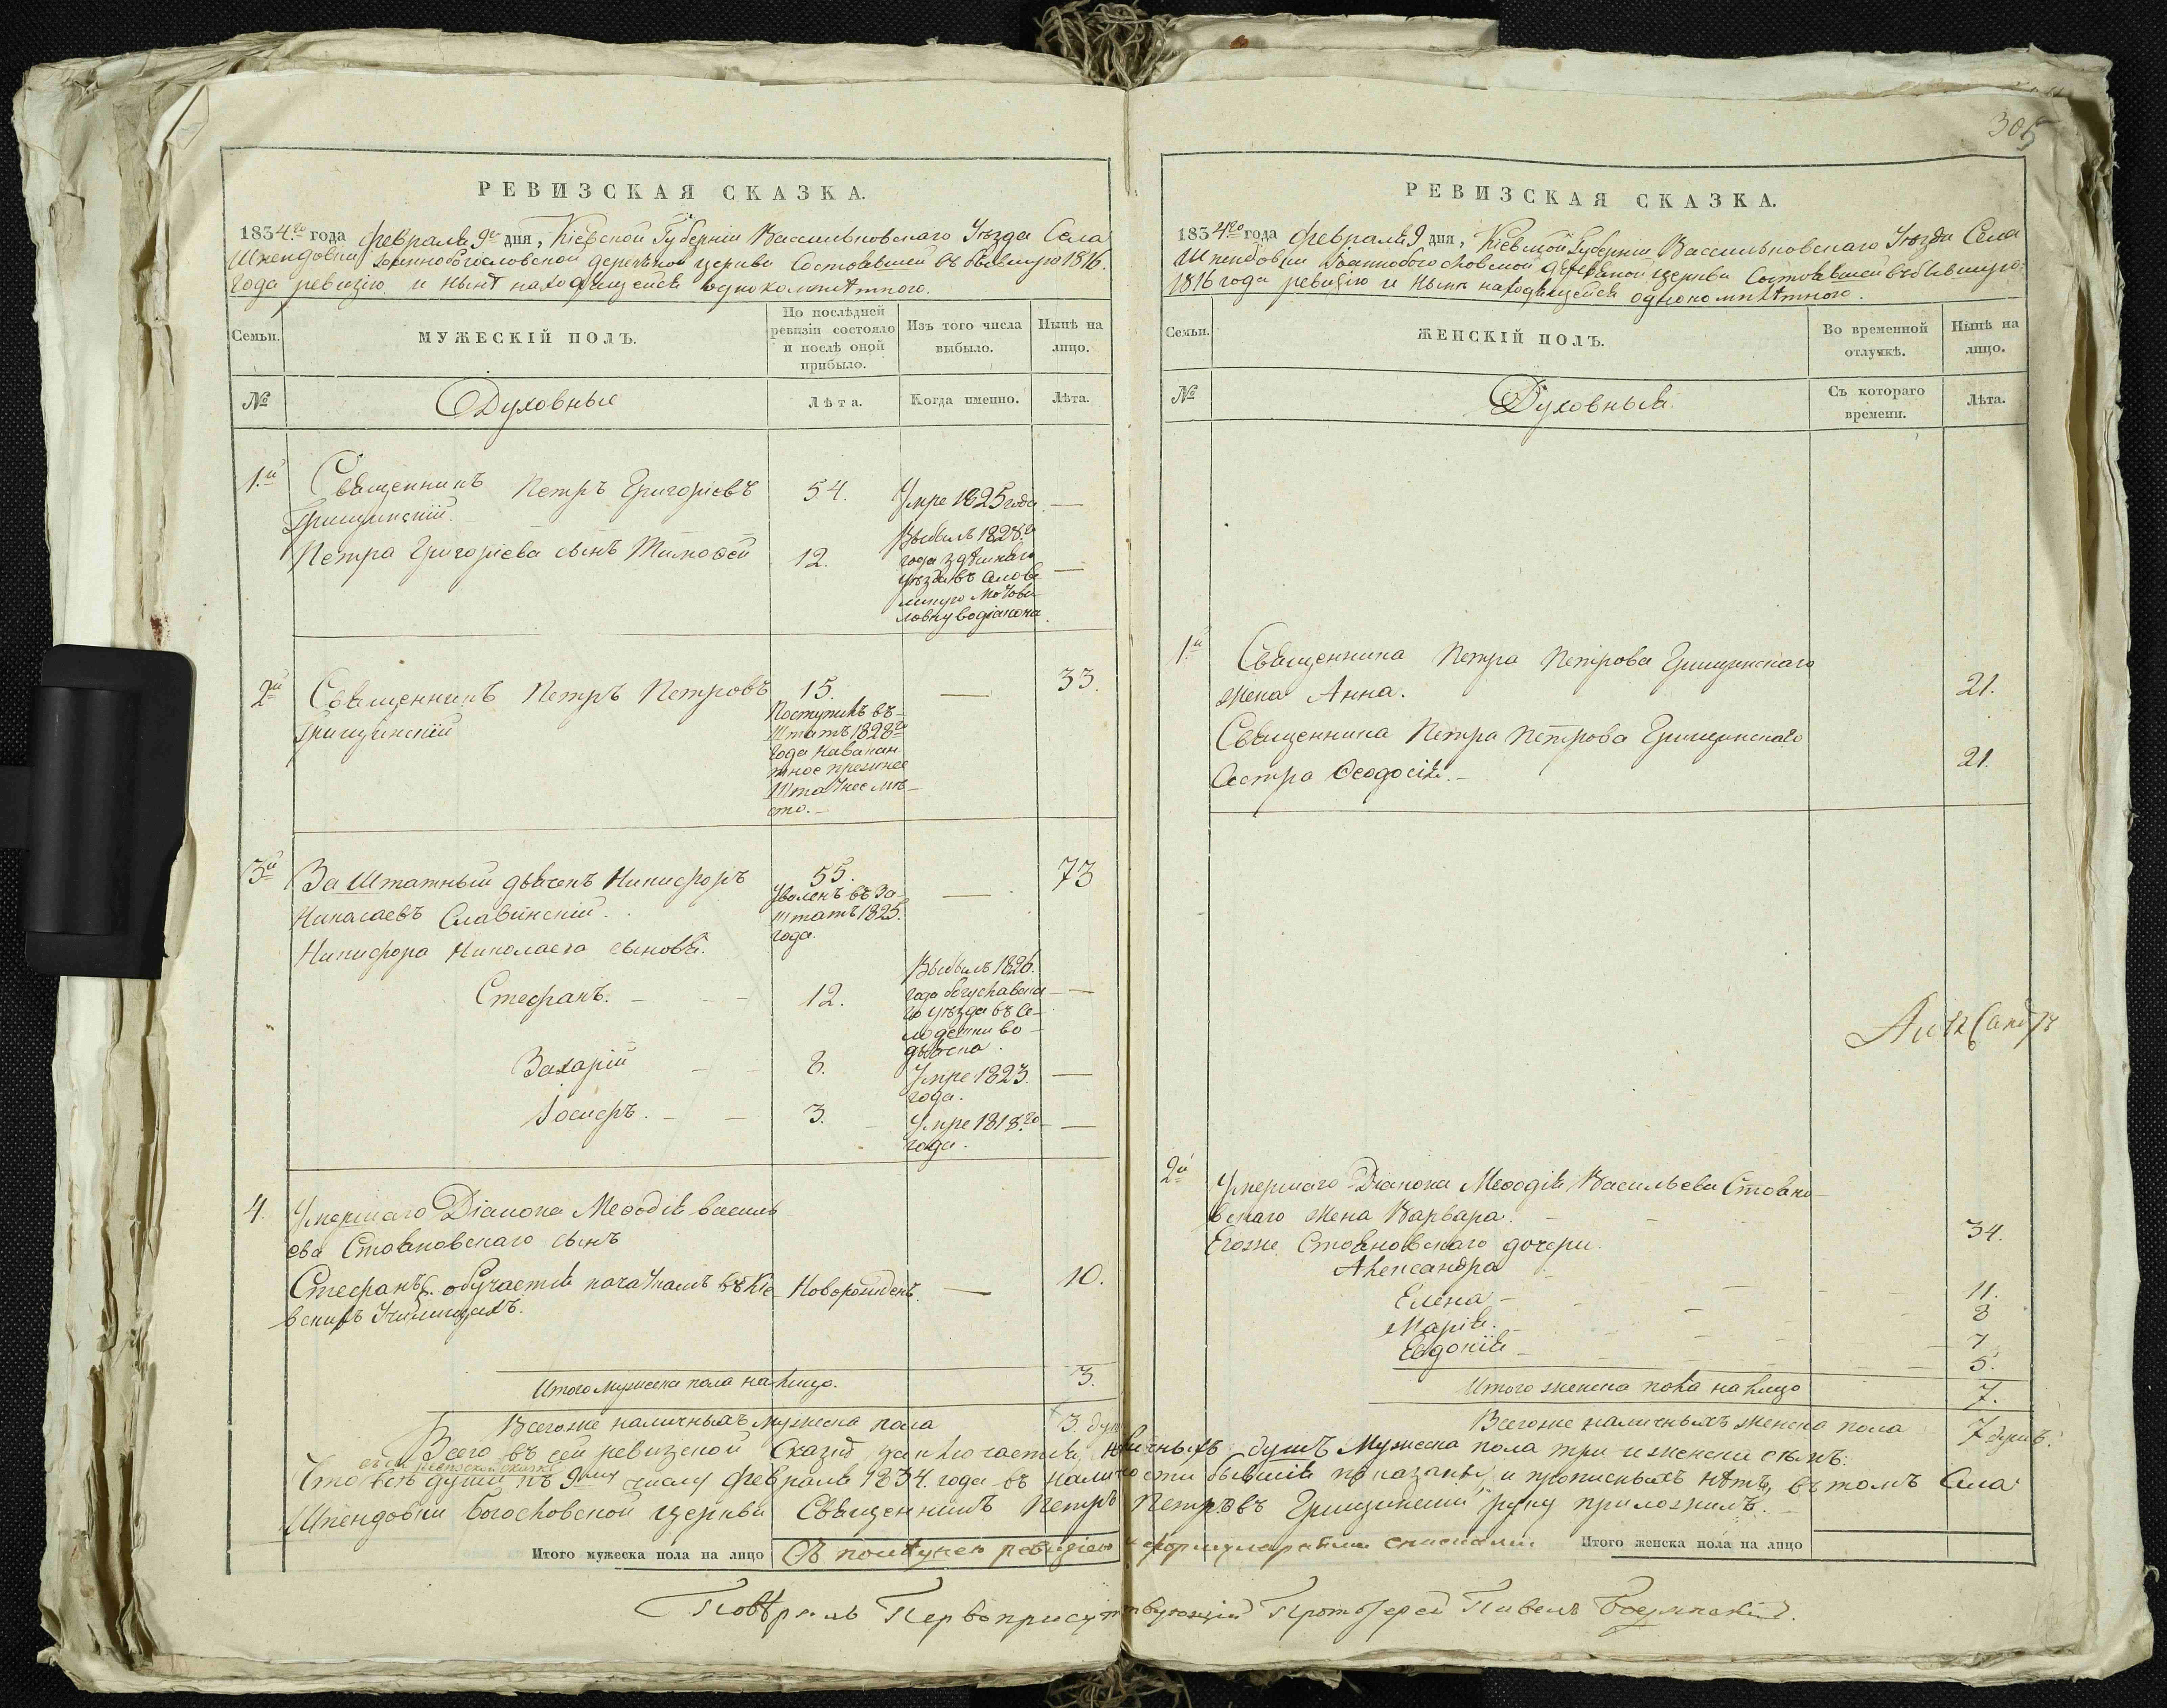 305
РЕВИЗСКАЯ СКАЗКА.
1834.го года февраля 9го дня, Кіевской Губерніи Васильковскаго Уѣзда Села
Шпендовки Іоаннобогословской деревяной церкви Состоявшей въ бывшую 1816.
года ревизію и нынѣ находящейся однокомплѣтного.
Семьи.
МУЖЕСКІЙ ПОЛЪ.
По послѣдней
ревизіи состояло
и послѣ оной
прибыло.
Изъ того числа
выбыло.
Нынѣ на
лицо.
№
Духовные
Лѣта.
Когда именно.
Лѣта.
1.й Священникъ Петръ Григоріевъ 54. Умре 1825 года. —
Грищинскій.
Петра Григоріева сынъ Тимофей 12. Выбылъ 1828.го
года здѣшняго
уѣзда въ
Мотови
ловку во діакона. —
2й Священникъ Петръ Петровъ 15. — 33.
Грищинскій
Поступилъ въ
Штатъ 1828го
года на вакан
тное
Штатное мѣ-
сто.-
3й За Штатный дьячекъ Никифоръ 55. — 73
Николаевъ Славинскій.
Уволенъ въ За
штатъ 1825.
года.
Никифора Николаева сыновья.
Стефанъ. - 12. Выбылъ 1826.
года богуславска
го уѣзда въ Се-
ло во
дьячка. —
Захарій 8. Умре 1823.
года. —
Іосифъ. - 3. Умре 1818.го
года. —
4. Умершаго Діакона Меѳодія василь
ева Стояновскаго сынъ
Стефанъ обучается началамъ въ Кіе Новорожденъ. — 10.
вскихъ Училищахъ.
Итого мужеска пола на лицо. 3.
Всегоже наличныхъ мужеска пола 3. душ
РЕВИЗСКАЯ СКАЗКА.
1834го года февраля 9 дня, Кіевской Губерніи Васильковскаго Уѣзда Села
Шпендовки Іоаннобогословской деревяной церкви Состоявшей въ бывшую
1816 года ревизію и нынѣ находящейся однокомплѣтного.
Семьи.
ЖЕНСКІЙ ПОЛЪ.
Во временной
отлучкѣ.
Нынѣ на
лицо.
№
Духовныя.
Съ котораго
времени.
Лѣта.
1.й Священника Петра Петрова Грищинскаго
жена Анна. 21.
Священника Петра Петрова Грищинскаго
Сестра Ѳеодосія.- 21.
2й Умершаго Діакона Меѳодія Васильева Стояно-
вскаго жена Варвара. 34.
Егоже Стояновскаго дочери.
Александра 11.
Елена - 8
Марія. - 7
Евдокія - 5.
Итого женска пола на лицо 7.
Всегоже наличныхъ женска пола 7 душъ.
Всего въ сей ревизской Сказкѣ заключается, наличныхъ душъ Мужеска пола три и женска семь.
сей ревизской сказки
Что всѣ души къ 9му числу февраля 1834. года въ наличности бывшія показаны, и прописныхъ нѣтъ, въ томъ Села
Шпендовки богословской церкви Священникъ Петръ Петровъ Грищинскій руку приложилъ.
Итого мужеска пола на лицо
Съ ревизіею и формулярными списками
Итого женска пола на лицо
Повѣрилъ Первоприсутствующій Протоіерей Павелъ